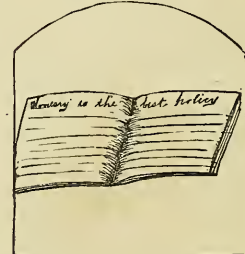 Honesty is the best policy